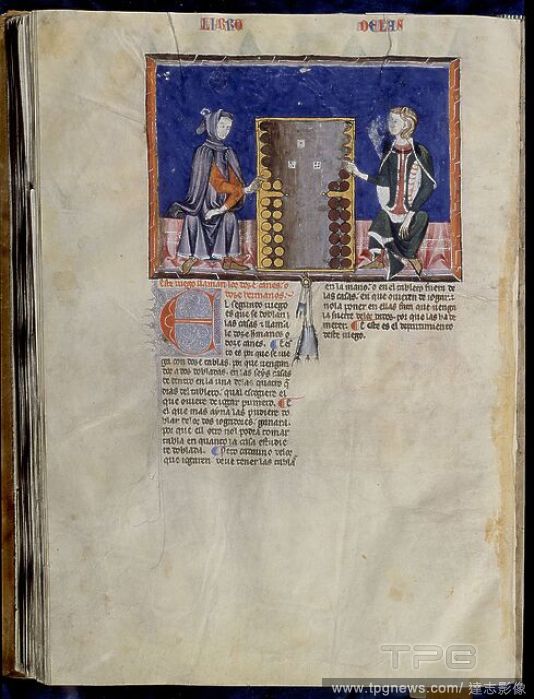 LIBRO DELAS
Este iuego llaman los doze canes. o
doze hermanos.
El segundo iuego
es que se doblan
las casas τ llama
le doze hermanos o
doze canes. Et es
to es por que se iue
ga con doze tablas. por que vengan
dos a dos dobladas. en las seys casas
de dentro en la una delas quatro q
dras del tablero. qual escogiere el
que ouiere de iogar primero. Et
el que mas ayna las pudiere do
blar delos dos iogadores. ganara.
por que ell otro nol podra tomar
tabla en quanto la casa estudie
re doblada. Pero cada uno delos
que iogaren deue tener las tablas
en la mano. o en el tablero fuera de
las casas. en que ouieren de iogar. τ
nola poner en ellas fata que uenga
la suerte delos dados. por que las ha de
meter. Et este es el departimiento
deste iuego.
TPG
www.tpgnews.com/ 達志影像